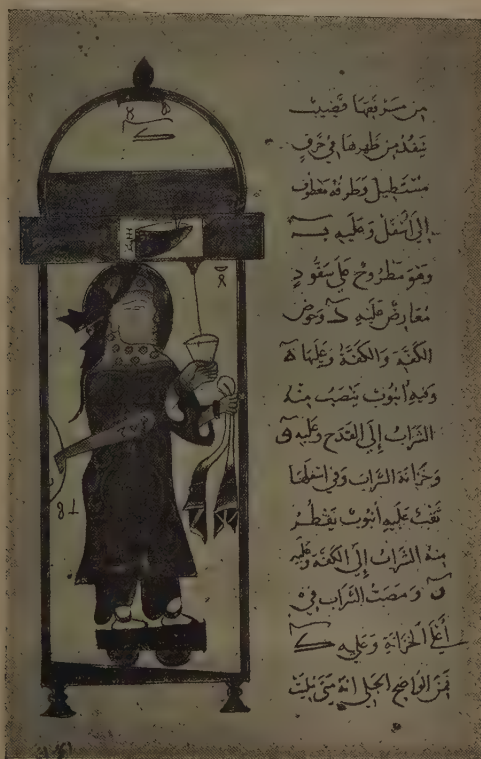 من مرفقها قضيب
ينفذ من ظهرها في خرق
مستطيل وطرفه معطوف
إلى أسفل وعليه
وهو مطروح على سفود
معارض عليه وحوض
الكفة والكفة وعليها
وفيه أنبوب ينصب منه
الشراب إلى القدح وعليه
وخزانة الشراب وفي أسفلها
ثقب عليه أنبوب يقطر
منه الشراب إلى الكفة وعليه
ن ومصب الشراب في
أعلى الخزانة وعليه ك
فمن الواضح الجلي أنه متى